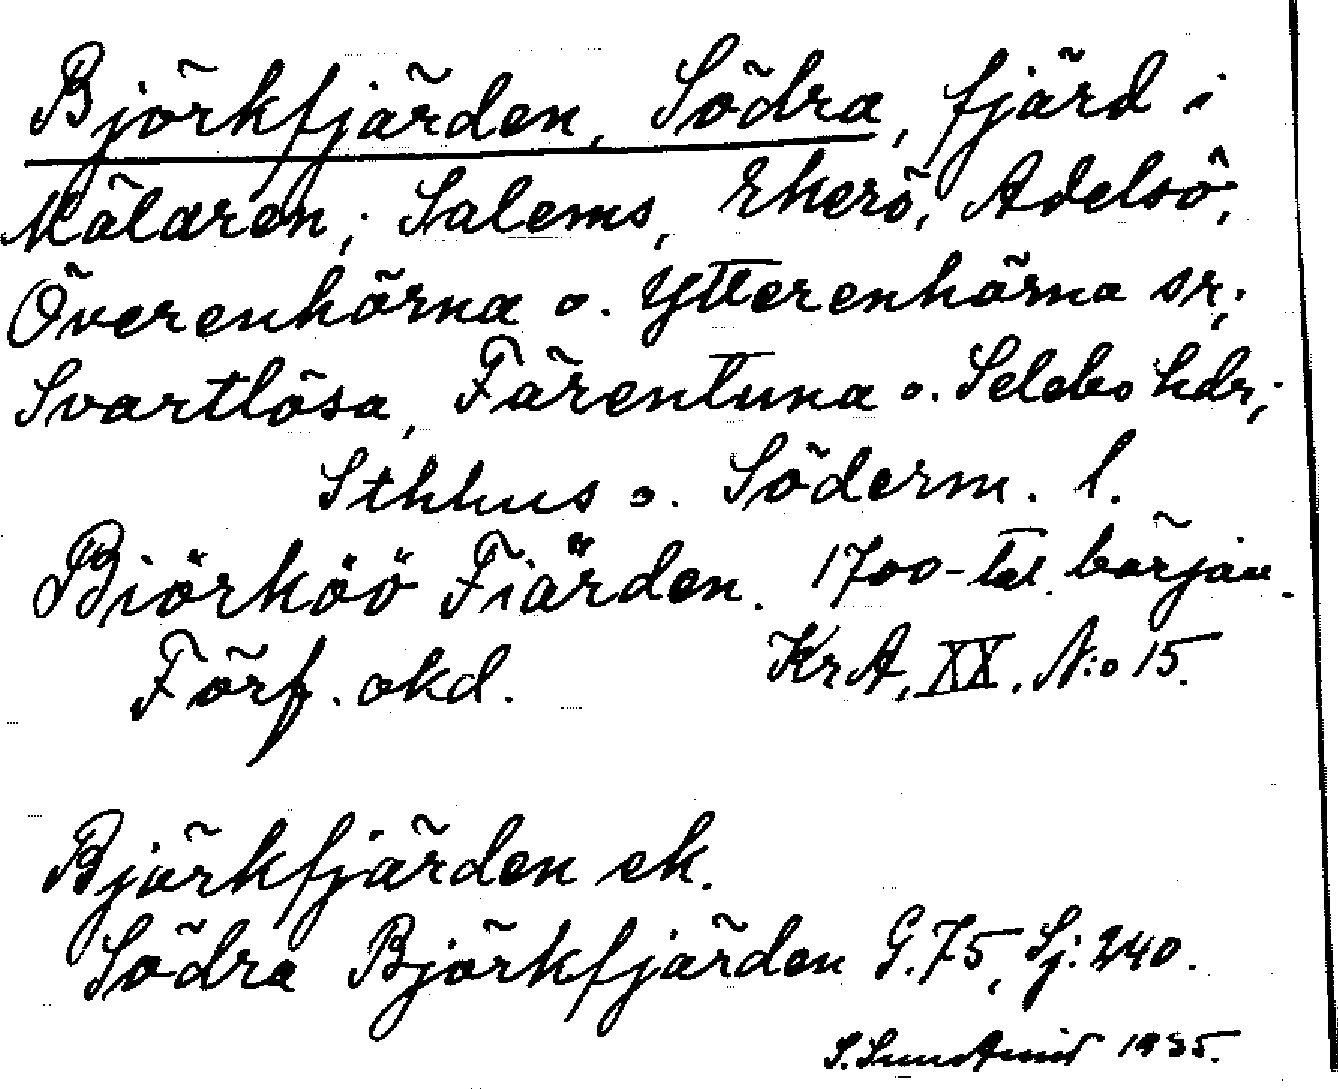 Björkfjärden, Södra, fjärd i
Mälaren; Salems, Ekerö, Adelsö,
Överenhörna o. Ytterenhörna sr;
Svartlösa, Färentuna o. Selebo hdr;
Sthlms o. Söderm. l.
Biörköö Fiärden. 1700-tal. början.
Förf. okd. KrA, XX, N:o 15.
Björkfjärden ek.
Södra Björkfjärden G. 75, Sj: 240.
S. 1935.